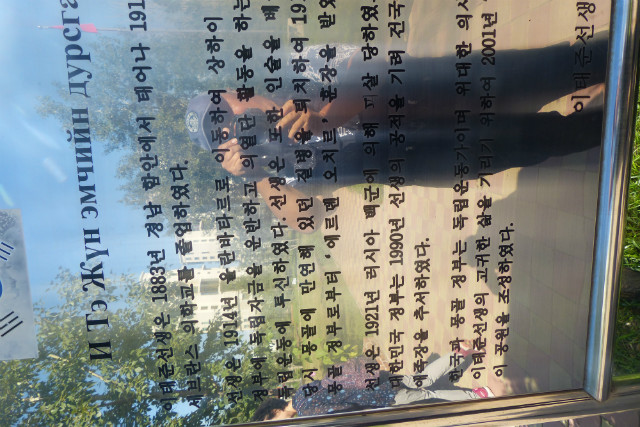 И Тэ Жүн эмчийн дурсга
이태준선생은 1883년 경남 함안에서 태어나 191
세브란스 의학교를 졸업하였다.
선생은 1914년 울란바타르로 이동하여 상하이
정부에 독립자금을 운반하고 의열단 활동을 하는
독립운동에 투신하였다. 선생은 또한 인술을 베
당시 몽골에 만연해 있던 질병을 퇴치하여 19
몽골 정부로부터 '에르덴 오치르' 훈장을 받았
선생은 1921년 러시아 백군에 의해 피살 당하였다.
대한민국 정부는 1990년 선생의 공적을 기려 건국
애족장을 추서하였다.
한국과 몽골 정부는 독립운동가이며 위대한 의사
이태준선생의 고귀한 삶을 기리기 위하여 2001년
이 공원을 조성하였다.
이태준선생